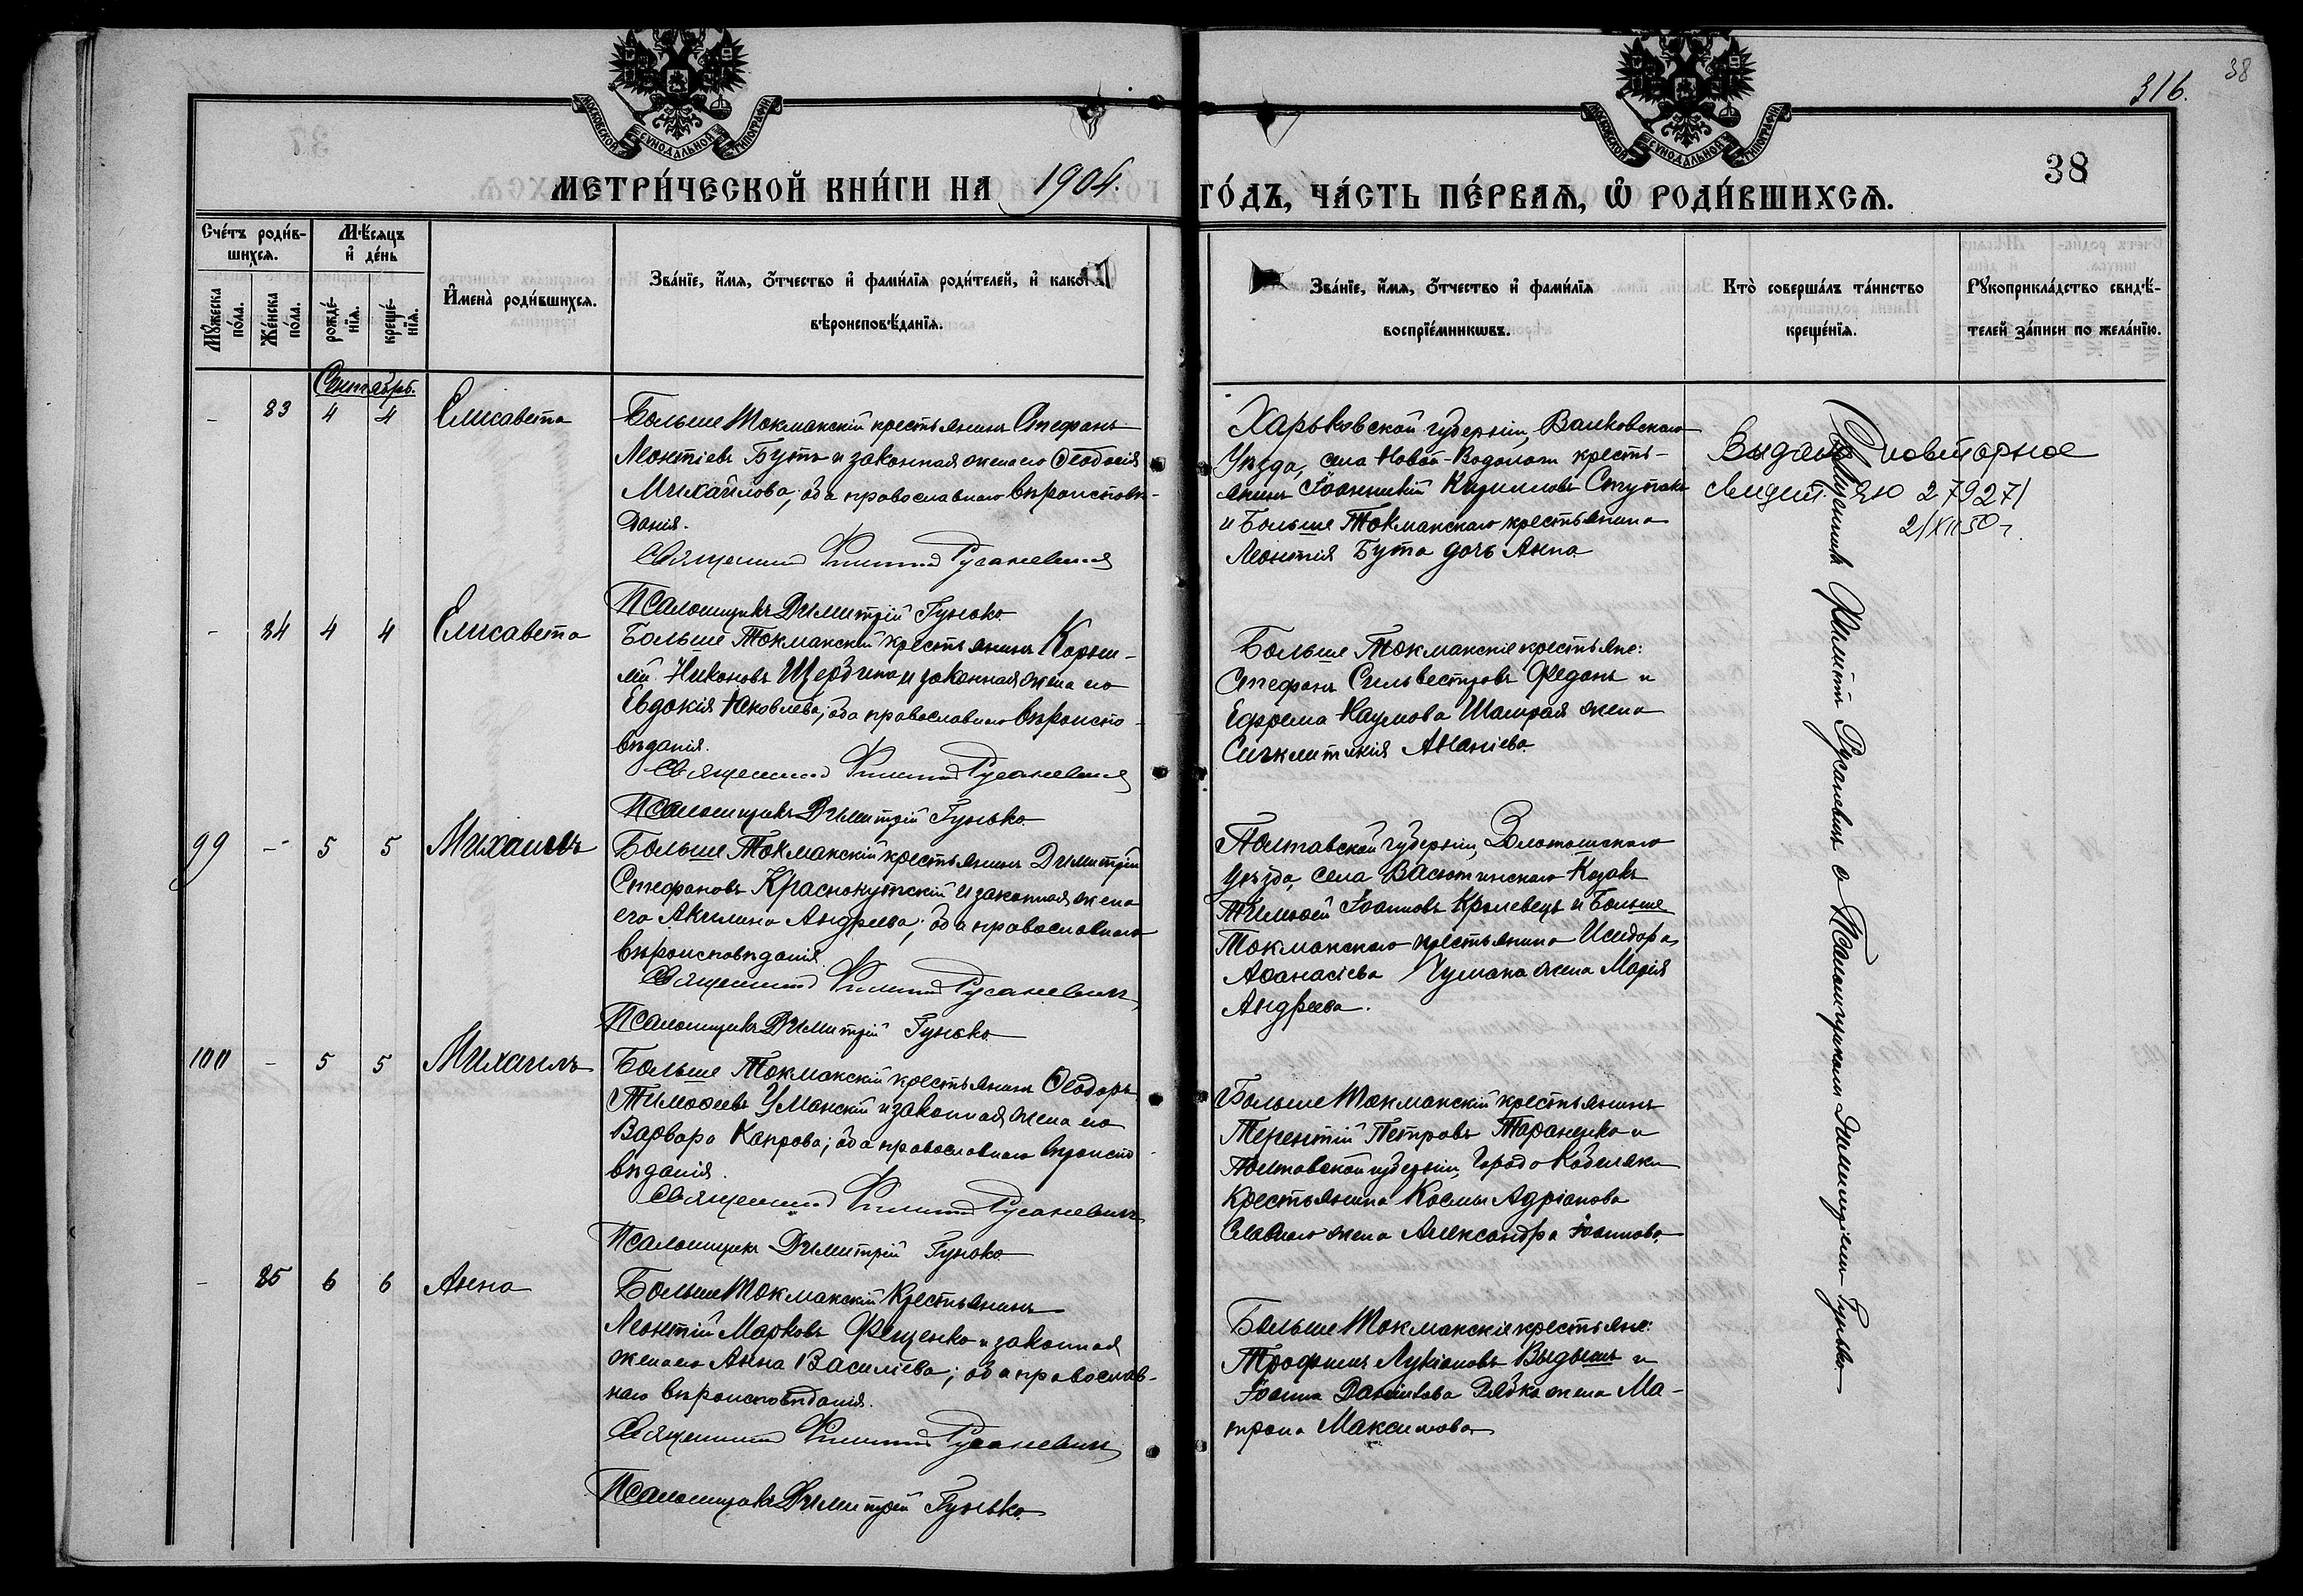 316.
38
38
МОСКОВСКОЙ СѴНОДАЛЬНОЙ ТИПОГРАФІИ
МОСКОВСКОЙ СѴНОДАЛЬНОЙ ТИПОГРАФІИ
МЕТРИ́ЧЕСКОЙ КНИ́ГИ НА 1904. ГО́ДЪ, ЧА́СТЬ ПЕ́РВАѦ, Ѡ҆ РОДИ́ВШИХСѦ.
Сче́тъ роди́в-
шихсѧ.
Мꙋ́жеска по́ла.
Же́нска по́ла.
Мѣ́сѧцъ
и҆ де́нь
рожде́-
нїѧ.
креще́-
нїѧ.
И҆мена̀ роди́вшихсѧ.
Зва́нїе, и҆́мѧ, ѻ҆́тчество и҆ фами́лїѧ роди́телей, и҆ како́
вѣроисповѣ́данїѧ.
Зва́нїе, и҆́мѧ, ѻ҆́тчество и҆ фами́лїѧ
воспрїе́мникѡвъ.
Кто̀ соверша́лъ та́инство
креще́нїѧ.
Рꙋкоприкла́дство свидѣ́-
телей за́писи по жела́нїю.
Сентябрь.
- 83 4 4 Елисавета
Больше Токмакскій крестьянинъ Стефанъ
Леонтіевъ Бутъ и законная жена его Ѳеодосія
Михайлова; оба православнаго вѣроисповѣ-
данія.
Священникъ Филиппъ Русаневичъ
Псаломщикъ Димитрій Гунько
Харьковской губерніи, Валковскаго
Уѣзда, села Новой-Водолаги кресть-
янинъ Іоанникій Кирилловъ Ступакъ
и Больше Токмакскаго крестьянина
Леонтія Бута дочь Анна
Выдано повторное
свидет. ЯЮ 279271
2/XII 50 г.
- 84 4 4 Елисавета
Больше Токмакскій крестьянинъ Корни-
лій Никоновъ Щербина и законная жена его
Евдокія Яковлева; оба православнаго вѣроиспо-
вѣданія.
Священникъ Филиппъ Русаневичъ
Псаломщикъ Димитрій Гунько
Больше Токмакскіе крестьяне:
Стефанъ Сильвестровъ Феданъ и
Ефрема Наумова Шамрая жена
Синклитикія Ананіева.
99 - 5 5 Михаилъ
Больше Токмакскій крестьянинъ Димитрій
Стефановъ Краснокутскій и законная жена
его Акилина Андреева; оба православнаго
вѣроисповѣданія.
Священникъ Филиппъ Русаневичъ
Псаломщикъ Димитрій Гунько
Полтавской губерніи, Золотоношскаго
уѣзда, села Васютинскаго Козакъ
Тимоѳей Іоанновъ Кролевецъ и Больше
Токмакскаго крестьянина Исидора
Аѳанасіева Чумака жена Марія
Андреева.
100 - 5 5 Михаилъ
Больше Токмакскій крестьянинъ Ѳеодоръ
Тимоѳеевъ Уманскій и законная жена его
Варвара Карпова; оба православнаго вѣроиспо-
вѣданія.
Священникъ Филиппъ Русаневичъ
Псаломщикъ Димитрій Гунько
Больше Токмакскій крестьянинъ
Терентій Петровъ Тараненко и
Полтавской губерніи, города Кобеляки
Крестьянина Космы Адріанова
Славнаго жена Александра Іоаннова.
- 85 6 6 Анна
Больше Токмакскій Крестьянинъ
Леонтій Марковъ Фещенко и законная
жена его Анна Василіева; оба православ-
наго вѣроисповѣданія.
Священникъ Филиппъ Русаневичъ
Псаломщикъ Димитрій Гунько
Больше Токмакскіе крестьяне:
Трофимъ Лукіановъ Выдышъ и
Іоанна Даніилова Рябка жена Ма-
трона Максимова
Священникъ Филиппъ Русаневичъ с Псаломщикомъ Димитріемъ Гунько